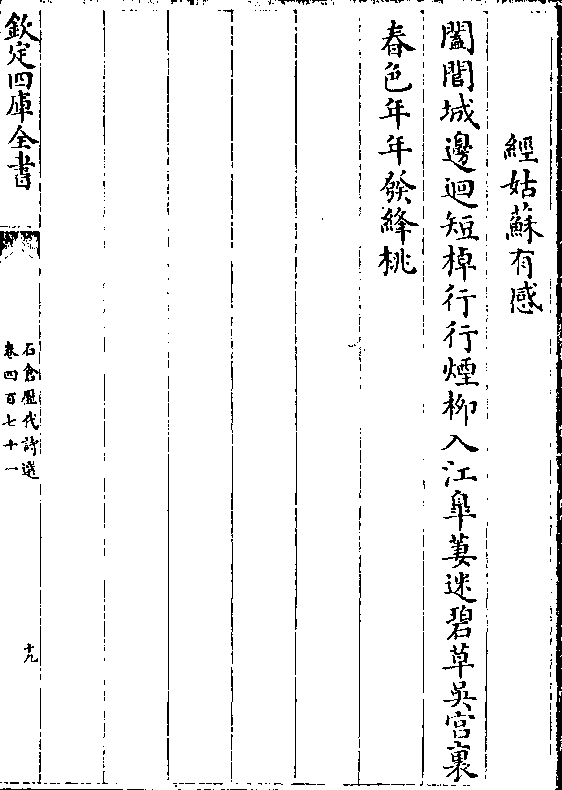 經姑蘇有感
闔閭城邊迴短棹行行煙柳入江臯萋迷碧草吳宫裏
春色年年發絳桃
欽定四庫全書
石倉歷代詩選
卷四百七十一
十九